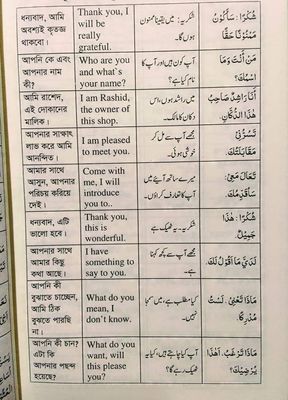 ধন্যবাদ, আমি
অবশ্যই কৃতজ্ঞ
থাকবো।
Thank you, I
will be
really
grateful.
شکریہ: میں یقیناً ممنون
ہوں گا۔
شُكْرًا: سَأَكُوْنُ
مَمْنُوْنًا حَقًّا
আপনি কে এবং
আপনার নাম
কী?
Who are you
and what`s
your name?
آپ کون ہیں اور آپ کا
نام کیا ہے؟
مَنْ أَنْتَ وَمَا
اسْمُكَ؟
আমি রাশেদ,
এই দোকানের
মালিক।
I am Rashid,
the owner of
this shop.
میں راشد ہوں، اس
دکان کا مالک۔
أَنَا رَاشِدٌ صَاحِبُ
هٰذَا الدُّكَّانِ.
আপনার সাক্ষাৎ
লাভ করে আমি
আনন্দিত।
I am pleased
to meet you.
مجھے آپ سے مل کر
خوشی ہوئی۔
تَسُرُّنِيْ
مُقَابَلَتُكَ
আমার সাথে
আসুন, আপনার
পরিচয় করিয়ে
দেই।
Come with
me, I will
introduce
you to..
میرے ساتھ آیئے میں
آپ کا تعارف کراؤں۔
تَعَالَ مَعِيْ:
سَأُقَدِّمُكَ
ধন্যবাদ, এটি
ভালো হবে।
Thank you,
this is
wonderful.
شکریہ۔ یہ ٹھیک ہے
شُكْرًا: هٰذَا
جَمِيْلٌ.
আপনার সাথে
আমার কিছু
কথা আছে।
I have
something to
say to you.
مجھے آپ سے کچھ کہنا
ہے۔
لَدَيَّ مَا أَقُوْلُ لَكَ.
আপনি কী
বুঝাতে চাচ্ছেন,
আমি ঠিক
বুঝতে পারছি
না।
What do you
mean, I
don`t know.
کیا مطلب ہے، میں سمجھا
نہیں۔
مَاذَا تَعْنِيْ، لَسْتُ
مُدْرِكًا
আপনি কী চান?
এটা কি
আপনার পছন্দ
হয়েছে?
What do you
want, will
this please
you?
آپ کیا چاہتے ہیں، کیا یہ
ٹھیک رہے گا؟
مَاذَا تَرْغَبُ، أَهٰذَا
يُرْضِيْكَ؟